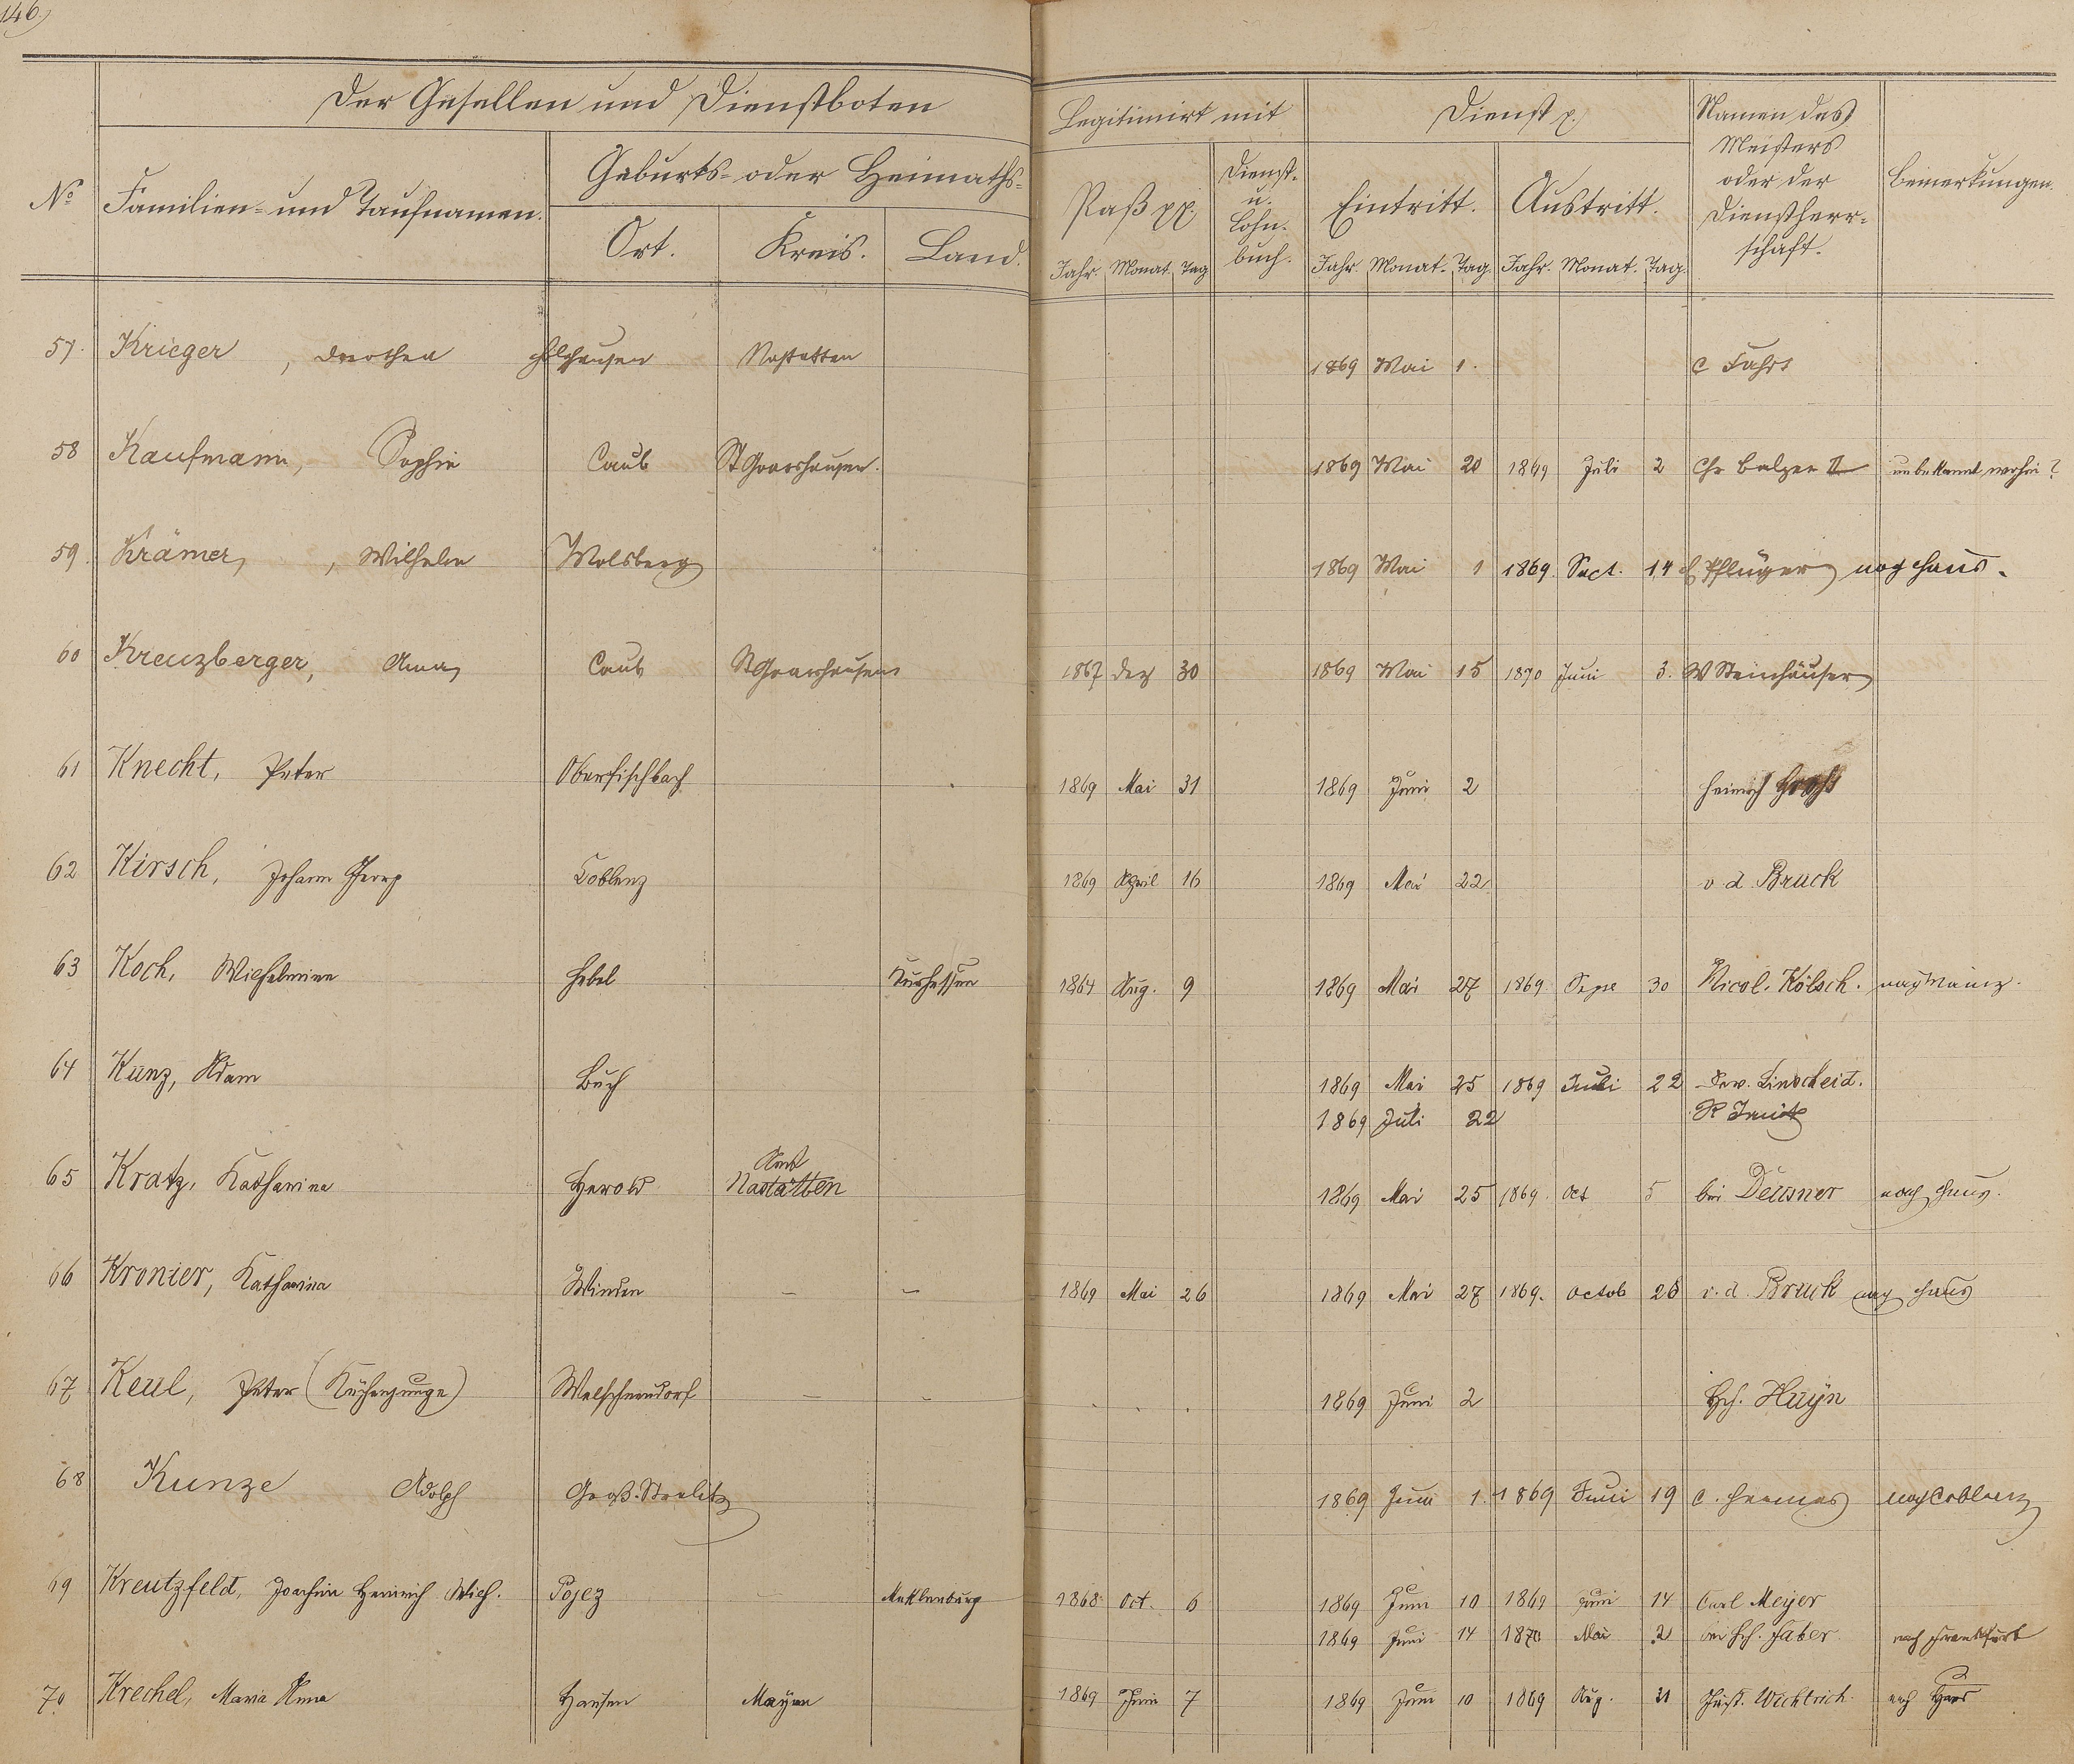 146.)
Der Gesellen und Dienstboten
Legitimirt mit
Dienst p.
Namen des Meisters oder der Dienstherr-schaft.
Bemerkungen.
No
Familien- und Taufnamen.
Geburts- oder Heimaths-
Ort. Kreis. Land.
Paß pp.
Dienst- u. Lohn-buch.
Eintritt. Austritt.
Jahr. Monat. Tag Jahr. Monat. Tag. Jahr. Monat. Tag.
57. Krieger, Dorothea Holzhausen Nastatten 1869 Mai 1. C
58 Kaufmann, Sophie Caub St Goarshausen. 1869 Mai 20 1869 Juli 2 Chr Balzer II unbekannt wohin?
59. Krämer, Wilhelm Molsberg 1869 Mai 1 1869 Sept. 14 Pflüger nach Haus.
60 Kreuzberger, Anna Caub St Goarshausen 1867 Dez 30 1869 Mai 15 1870 Juni 3. W Steinhäuser
61 Knecht, Peter Oberfischbach 1869 Mai 31 1869 Juni 2 Heinrich
62 Kirsch, Johann Georg Coblenz 1869 April 16 1869 Mai 22 v. d. Bruck
63 Koch, Wilhelmine Hebel Kurhessen 1864 Aug. 9 1869 Mai 27 1869 Sept 30 Nicol. Kölsch. nach Mainz.
64 Kunz, Adam Buch 1869 Mai 25 1869 Juli 22 Linscheid.
1869 Juli 22
65 Kratz, Katharina Herold Amt Nastätten 1869 Mai 25 1869. Oct 5 bei Deusner nach Haus.
66 Kronier, Katharina Winden - - 1869 Mai 26 1869 Mai 27 1869. Octob 26 v. d. Bruck nach Haus
67 Keul, Peter (Küchenjunge) Welschneudorf - - 1869 Juni 2 Hch. Huÿn
68 Kunze Adolph Groß-Strelitz 1869 Juni 1. 1869 Juni 19 C. Hermes nach Coblenz
69 Kreutzfeld, Joachim Heinrich Wilh. Pojez - Meklenburg 1868 Oct. 6 1869 Juni 10 1869 Juni 14 Carl Meyer
1869 Juni 14 1870 Mai 2 bei Hch. Faber. nach Frankfurt
70 Krechel, Maria Anna Hausen Mayen 1869 Juni 7 1869 Juni 10 1869 Aug. 21 Wichtrich. nach Haus